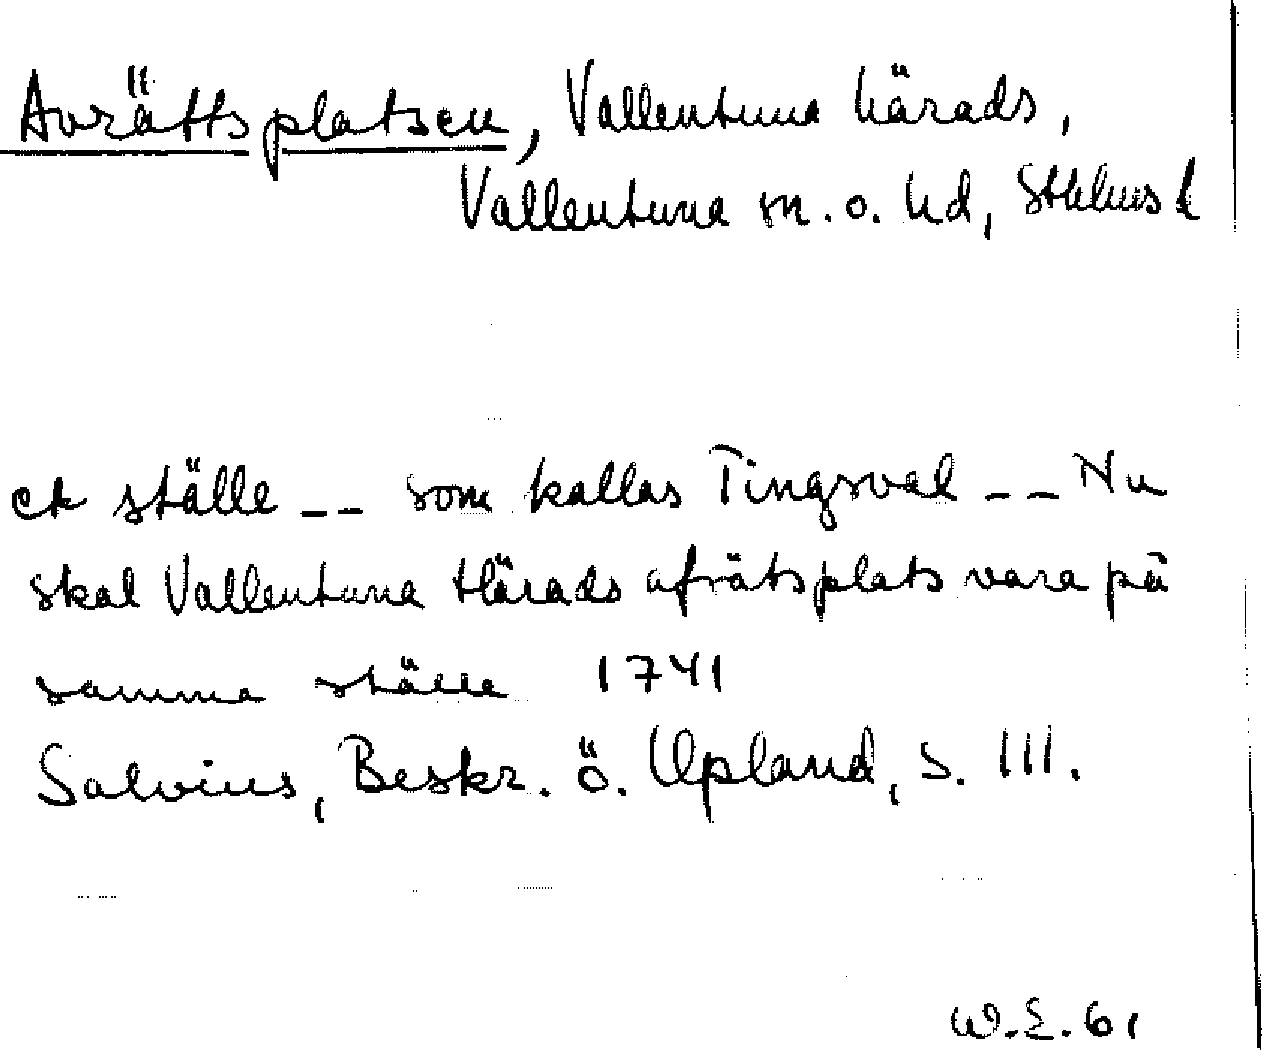 Avrättsplatsen, Vallentuna härads,
Vallentuna sn. o. hd, Sthlms l
ett ställe _ _ som kallas Tingsval _ _ Nu
skal Vallentuna Härads afrätsplats vara på
samma ställe 1741
Salvius, Beskr. ö. Upland, s. 111.
W.E. 61